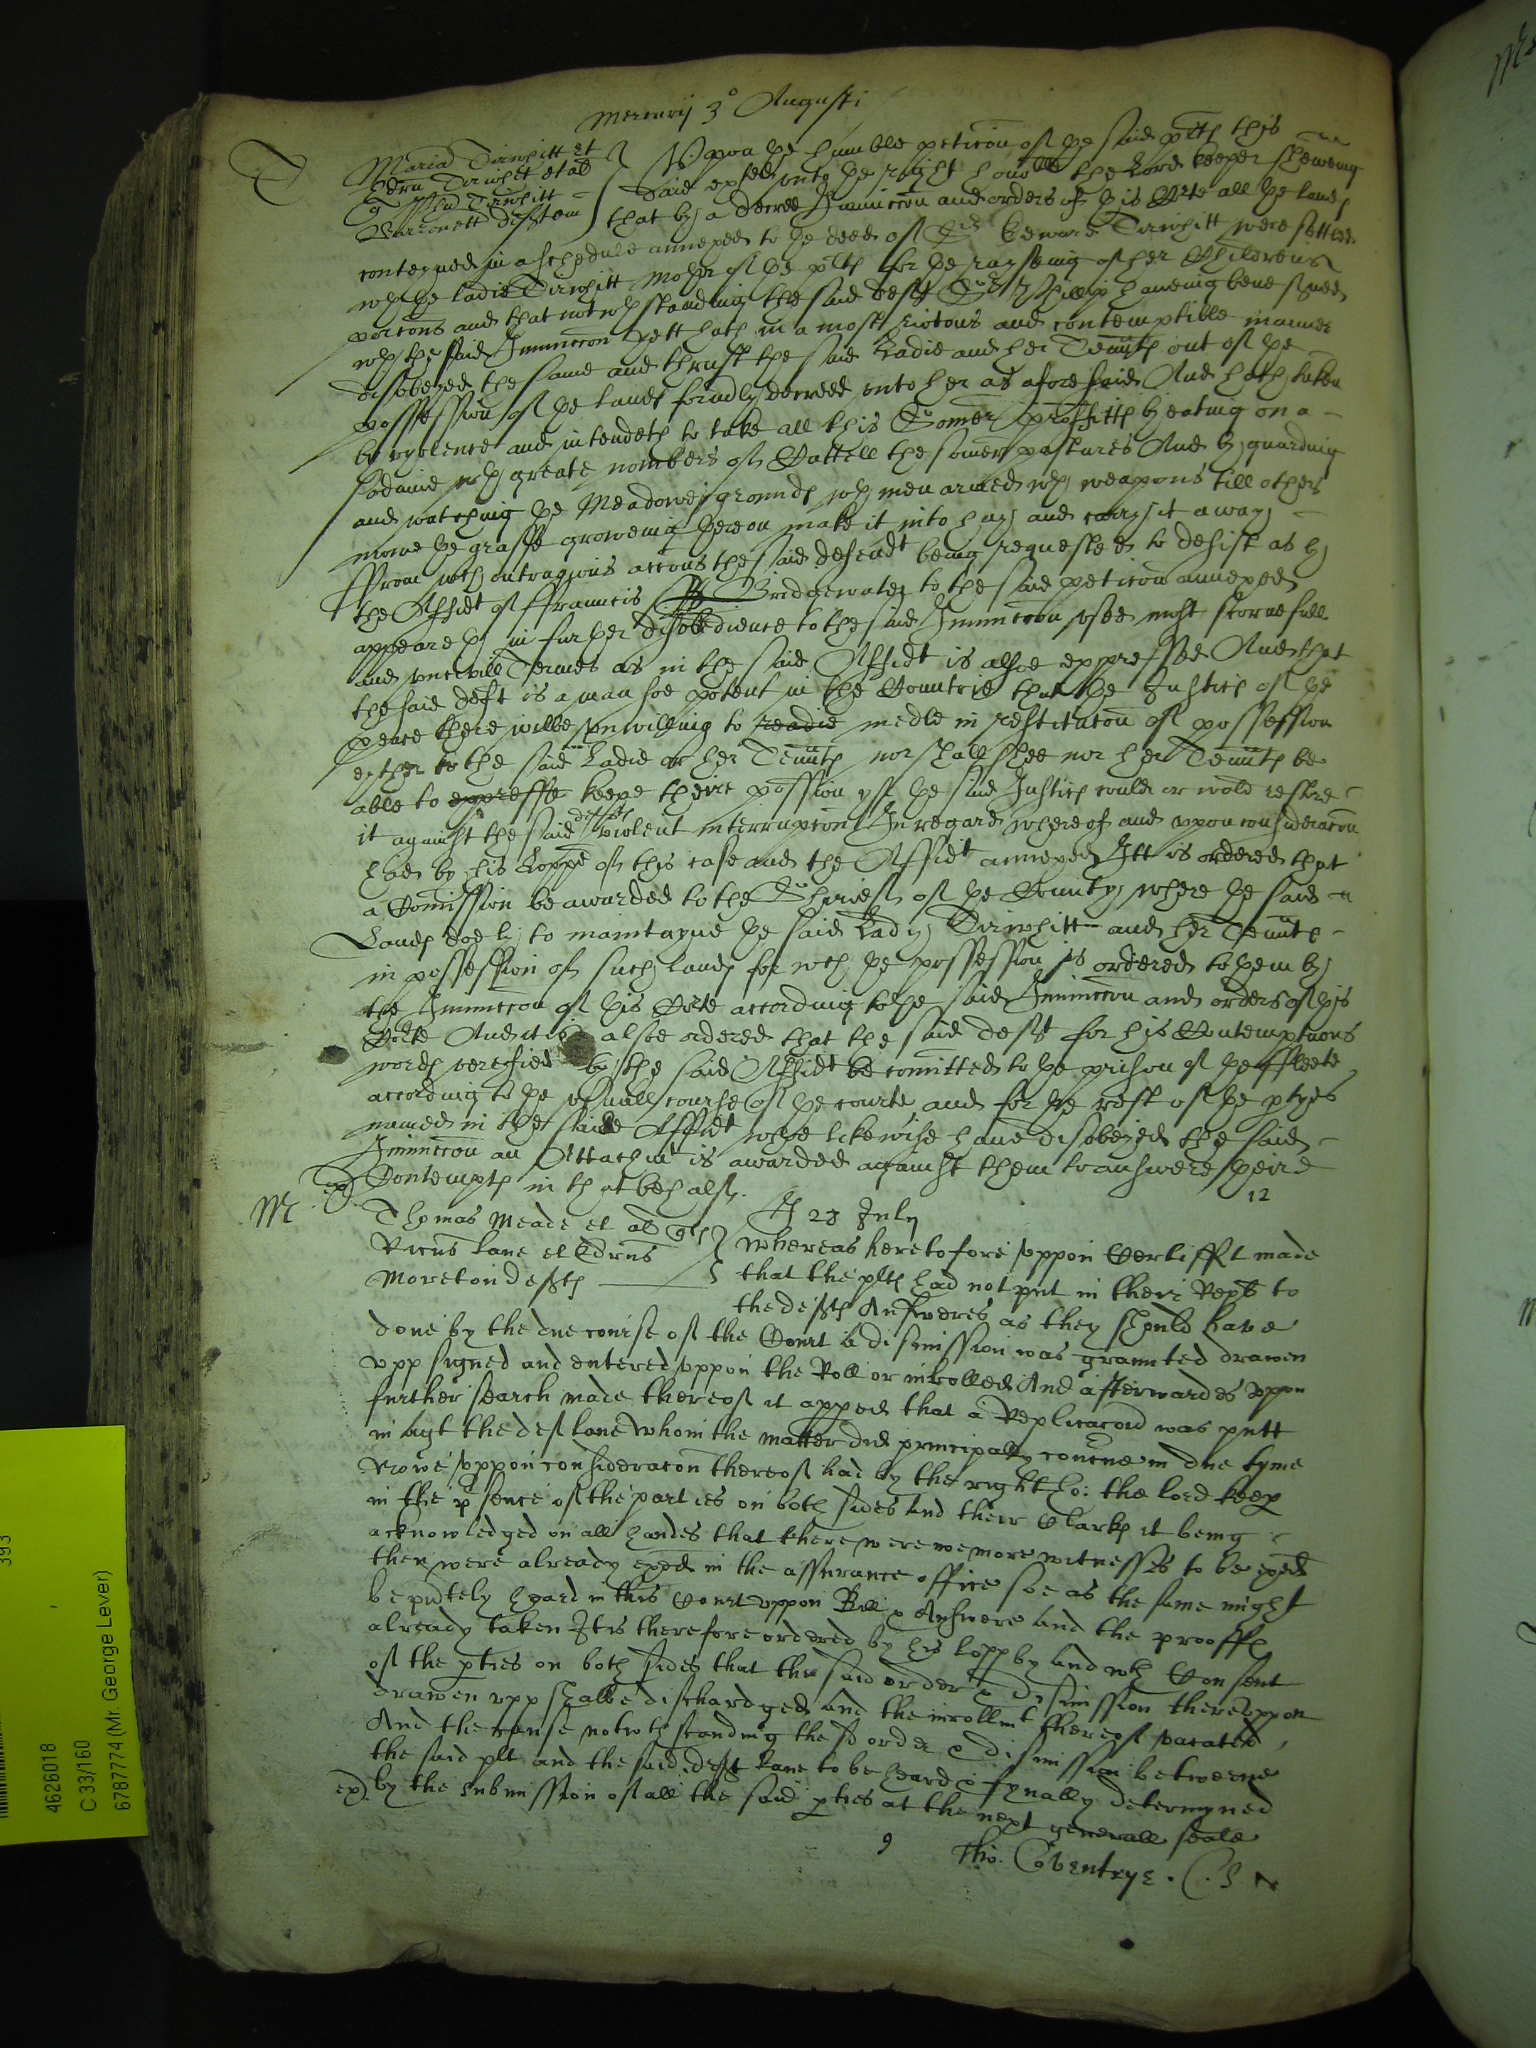 Mercurij 3° Augusti
T
Maria Tirwhitt et
Edru Tirwhitt et al
Tirwhitt
Barronett defftem
Vpon the humble peticon of the said pltfs this
daie exhited vnto the right honoble the Lord keeper shewing
that by a decree Iniunccon and orders of this Corte all the lands
conteyned in a schedule annexed to the deed of Sr Edward Tirwhitt were settled
wth the ladie Tirwhitt mother of the pltfs for the raysing of her Childrens
porcons and that notwthstanding the said deft Sr Phillipp haveing bene served
wth the said Iniunccon yett hath in a most riotous and contemptible manner
disobeyed the same and thrust the said Ladie and her Tennts out of the
possession of the lands formerly decreed vnto her as aforesaid And hath taken
by vyolence and intendeth to take all this Somer proffitts by eating on a
sodaine wth greate nombers of Cattell the somer pastures And by guarding
and watching the Meadowe grounds wth men armed wth weapons till others
mowe the grasse groweing thereon make it into hay and carry it away
ffrom wch outragious accons the said defendt being requested to desist as by
the Affidt of ffrauncis Bridgewater to the said peticon annexed
appeareth in further disobedience to the said Iniunccon vsed most scornefull
and vncivill Termes as in the said Affidt is alsoe expressed And that
the said deft is a man soe potent in the Countrie that the Iustics of the
peace there wilbe vnwilling to readie medle in restitucon of possession
eyther to the said Ladie or her Tennts nor shall shee nor her Tennts be
able to expresse keepe their possion yf the said Iustics could or wold restore
it against the said defts violent interrupcons In regard whereof and vpon consideracon
had by his Lopp of this case and the Affidt annexed Itt is ordered that
a Comission be awarded to the Sherief of the County where the said
Lands doe ly to maintayne the said Lady Tirwhitt and her Tennts
in possession of such lands for wch the possession is ordered to them by
the Iniunccon of this Corte according to the said Iniunccon and orders of this
Corte And it is alsoe ordered that the said deft for his Contemptuous
words verefied by the said Affidt be comitted to the prison of the ffleete
according to the vsuall course of the courte and for the rest of the ptyes
named in the said Affidt whoe likewise have disobeyed the said
Iniunccon an Attachmt is awarded against them to answere their
Contempts in that behalf.
12
M
Thomas Meade et al qts
Ricus Lane et Edrus
Moreton defts
H 23 July
Whereas heretofore vppon Certifft made
that the plts had not put in their Repls to
the defts Answeres as they should have
done by the due course of the Court a dismission was graunted drawen
vpp signed and entered vppon the Roll or inrolled And afterwardes vppon
further search made thereof it apped that a Replicacon was putt
in agt the deft Lane whom the matter did principally concerne in due tyme
Nowe vppon consideracon thereof had by the right ho: the lord keep
in the psence of the parties on both sides and their Clarks it being
acknowledged on all handes that there were noe more witnesses to be exed
then were already exed in the assurance office soe as the same might
be pntely heard in this Court vppon Bill & Answere and the prooffs
already taken It is therefore ordered by his Lopp by and wth Consent
of the pties on both sides that the said order & dismission therevppon
drawen vpp shalbe dischardged and the inrollmt thereof vacated
And the cause notwthstanding the sd order & dismission betweene
the said plt and the said deft Lane to be heard & fynally determyned
ex by the submission of all the said pties at the next generall seale
9
Tho. Coventrye. C. S
4626018
C 33/160
6787774 (Mr. George Lever)
393